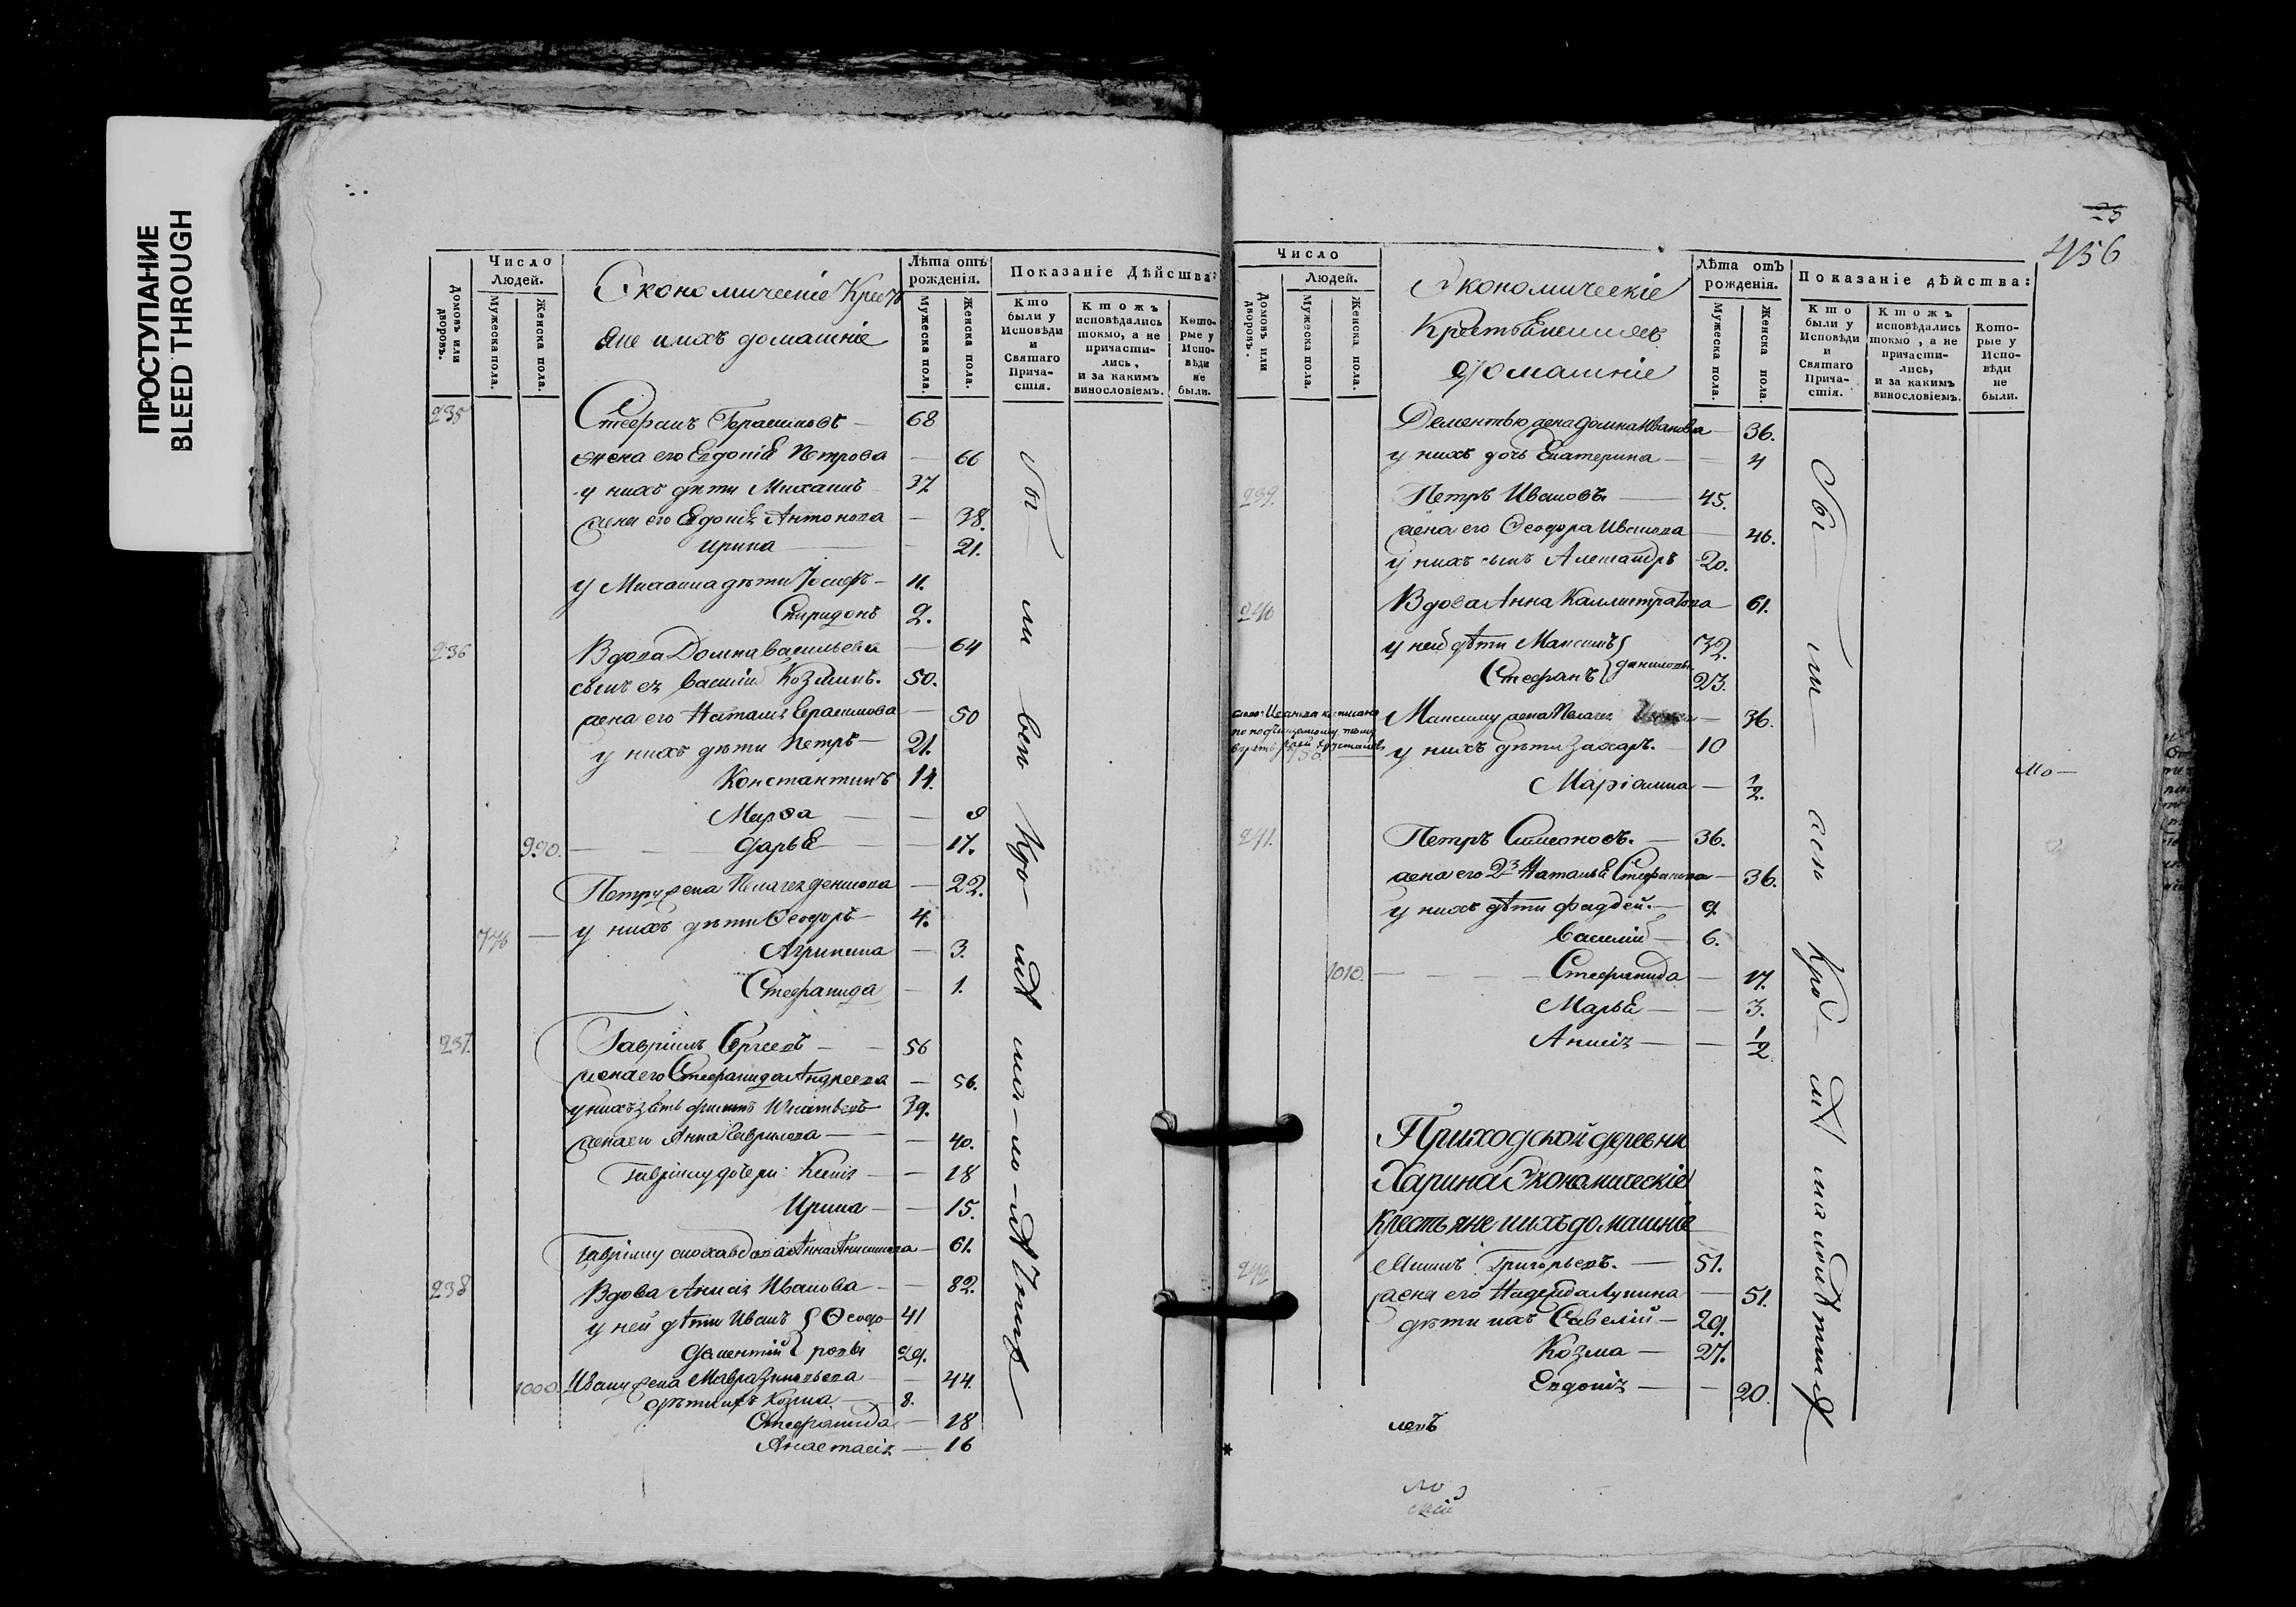 ПРОСТУПАНИЕ
BLEED THROUGH
Домовъ или дворовъ.
Число Людей.
Мужеска пола.
Женска пола.
Экономическіе Кресть
яне и ихъ домашніе
Лѣта отъ рожденія.
Мужеска пола.
Женска пола.
Показаніе Дѣйства:
Кто были у Исповѣди и Святаго Причастія.
Ктожъ исповѣдались токмо, а не причастились, и за какимъ винословіемъ.
Которые у Исповѣди не были.
235 Стефанъ Герасимовъ — 68
жена его Евдокія Петрова — 66
у нихъ дѣти Михаилъ 37
жена его Евдокія Антонова — 38.
Ирина — 21.
у Михаила дѣти Іосифъ — 11.
Спиридонъ 2.
236 Вдова Домна Васильева — 64
сынъ ея Василій Козминъ. 50.
жена его Наталія Герасимова — 50
у нихъ дѣти Петръ — 21.
Константинъ 14.
Марѳа — 9
990. — Дарья — 17.
Петру жена Пелагея Денисова — 22.
776 — у нихъ дѣти Ѳеодоръ — 4.
Агрипина — 3.
Стефанида — 1.
237. Гавріилъ Сергеевъ — 56
жена его Стефанида Андреева — 56.
у нихъ зять Филипъ Игнатьевъ 39.
жена его Анна Гаврилова — 40.
Гавріилу дочери: Ксенія — 18
Ирина — 15.
Гавріилу сноха вдова Анна Анисимова — 61.
238 Вдова Анисія Иванова — 82.
у ней дѣти Иванъ } Ѳеодо 41
Дементій } ровы 29.
1000. Ивану жена Мавра Зиновьева — 44.
дѣти ихъ Козма — 8.
Стефанида — 18
Анастасія — 16
25
456
Число
Домовъ или дворовъ.
Людей.
Мужеска пола.
Женска пола.
Экономическіе
Крестьяне и ихъ
домашніе
Лѣта отъ рожденія.
Мужеска пола.
Женска пола.
Показаніе дѣйства:
Кто были у Исповѣди и Святаго Причастія.
Ктожъ исповѣдались токмо, а не причастились, и за какимъ винословіемъ.
Которые у Исповѣди не были.
Дементью жена Домна Иванова — 36.
у нихъ дочь Екатерина — 4
239. Петръ Ивановъ. — 45.
жена его Ѳеодора Иванова — 46.
у нихъ сынъ Александръ 20.
240 Вдова Анна Каллистратова — 61.
у ней дѣти Максимъ } 32.
Стефанъ } Даниловы. 23.
Максиму жена Пелагея — 36.
у нихъ дѣти Захаръ. — 10
Маріамна — 1/2.
мо —
241. Петръ Симеоновъ. — 36.
жена его 2я Наталья Стефанова — 36.
у нихъ дѣти Фаддей. — 9.
Василій — 6.
1010. — Стефанида — 17.
Марья — 3.
Анисія — 1/2
Приходской деревни
Харина Экономическіе
крестьяне и ихъ домашніе
242 Григорьевъ. — 51.
жена его Надежда Лупина — 51.
дѣти ихъ Савелій — 29.
Козма — 27.
Евдокія — 20.